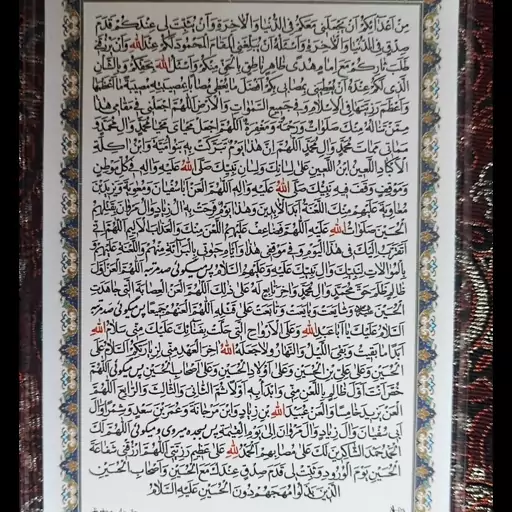 مِنْ أَعْدَائِكُمْ أَنْ يَجْعَلَنِي مَعَكُمْ فِي الدُّنْيَا وَالْآخِرَةِ وَأَنْ يُثَبِّتَ لِي عِنْدَكُمْ قَدَمَ
صِدْقٍ فِي الدُّنْيَا وَالْآخِرَةِ وَأَسْأَلُهُ أَنْ يُبَلِّغَنِي الْمَقَامَ الْمَحْمُودَ لَكُمْ عِنْدَ اللهِ وَأَنْ يَرْزُقَنِي
طَلَبَ ثَارِكُمْ مَعَ إِمَامٍ هُدًى ظَاهِرٍ نَاطِقٍ بِالْحَقِّ مِنْكُمْ وَأَسْئَلُ اللهَ بِحَقِّكُمْ وَبِالشَّأْنِ
الَّذِي لَكُمْ عِنْدَهُ أَنْ يُعْطِيَنِي بِمُصَابِي بِكُمْ أَفْضَلَ مَا يُعْطِي مُصَابًا بِمُصِيبَتِهِ مُصِيبَةً مَا أَعْظَمَهَا
وَأَعْظَمَ رَزِيَّتَهَا فِي الْإِسْلَامِ وَفِي جَمِيعِ السَّمٰوَاتِ وَالْأَرْضِ اللّٰهُمَّ اجْعَلْنِي فِي مَقَامِي هٰذَا
مِمَّنْ تَنَالُهُ مِنْكَ صَلَوَاتٌ وَرَحْمَةٌ وَمَغْفِرَةٌ اللّٰهُمَّ اجْعَلْ مَحْيَايَ مَحْيَا مُحَمَّدٍ وَآلِ مُحَمَّدٍ وَ
مَمَاتِي مَمَاتَ مُحَمَّدٍ وَآلِ مُحَمَّدٍ اللّٰهُمَّ إِنَّ هٰذَا يَوْمٌ تَبَرَّكَتْ بِهِ بَنُو أُمَيَّةَ وَابْنُ آكِلَةِ
الْأَكْبَادِ اللَّعِينُ ابْنُ اللَّعِينِ عَلَى لِسَانِكَ وَلِسَانِ نَبِيِّكَ صَلَّى اللهُ عَلَيْهِ وَآلِهِ فِي كُلِّ مَوْطِنٍ
وَمَوْقِفٍ وَقَفَ فِيهِ نَبِيُّكَ صَلَّى اللهُ عَلَيْهِ وَآلِهِ اللّٰهُمَّ الْعَنْ أَبَا سُفْيَانَ وَمُعٰوِيَةَ وَيَزِيدَ بْنَ
مُعَاوِيَةَ عَلَيْهِمْ مِنْكَ اللَّعْنَةُ أَبَدَ الْآبِدِينَ وَهٰذَا يَوْمٌ فَرِحَتْ بِهِ آلُ زِيَادٍ وَآلُ مَرْوَانَ بِقَتْلِهِمُ
الْحُسَيْنَ صَلَوَاتُ اللهِ عَلَيْهِ اللّٰهُمَّ فَضَاعِفْ عَلَيْهِمُ اللَّعْنَ مِنْكَ وَالْعَذَابَ الْأَلِيمَ اللّٰهُمَّ إِنِّي
أَتَقَرَّبُ إِلَيْكَ فِي هٰذَا الْيَوْمِ وَفِي مَوْقِفِي هٰذَا وَأَيَّامِ حَيٰوتِي بِالْبَرَاءَةِ مِنْهُمْ وَاللَّعْنَةِ عَلَيْهِمْ وَ
بِالْمُوَالَاتِ لِنَبِيِّكَ وَآلِ نَبِيِّكَ عَلَيْهِ وَعَلَيْهِمُ السَّلَامُ پس میگوئی صد مرتبه اللّٰهُمَّ الْعَنْ أَوَّلَ
ظَالِمٍ ظَلَمَ حَقَّ مُحَمَّدٍ وَآلِ مُحَمَّدٍ وَآخِرَ تَابِعٍ لَهُ عَلَى ذٰلِكَ اللّٰهُمَّ الْعَنِ الْعِصَابَةَ الَّتِي جَاهَدَتِ
الْحُسَيْنَ وَشَايَعَتْ وَبَايَعَتْ وَتَابَعَتْ عَلَى قَتْلِهِ اللّٰهُمَّ الْعَنْهُمْ جَمِيعًا پس میگوئی صد مرتبه
السَّلَامُ عَلَيْكَ يَا أَبَا عَبْدِ اللهِ وَعَلَى الْأَرْوَاحِ الَّتِي حَلَّتْ بِفِنَائِكَ عَلَيْكَ مِنِّي سَلَامُ اللهِ
أَبَدًا مَا بَقِيتُ وَبَقِيَ اللَّيْلُ وَالنَّهَارُ وَلَا جَعَلَهُ اللهُ آخِرَ الْعَهْدِ مِنِّي لِزِيَارَتِكُمْ السَّلَامُ عَلَى
الْحُسَيْنِ وَعَلَى عَلِيِّ بْنِ الْحُسَيْنِ وَعَلَى أَوْلَادِ الْحُسَيْنِ وَعَلَى أَصْحَابِ الْحُسَيْنِ پس میگوئی اللّٰهُمَّ
خُصَّ أَنْتَ أَوَّلَ ظَالِمٍ بِاللَّعْنِ مِنِّي وَابْدَأْ بِهِ أَوَّلًا ثُمَّ الثَّانِيَ وَالثَّالِثَ وَالرَّابِعَ اللّٰهُمَّ
الْعَنْ يَزِيدَ خَامِسًا وَالْعَنْ عُبَيْدَ اللهِ بْنَ زِيَادٍ وَابْنَ مَرْجَانَةَ وَعُمَرَ بْنَ سَعْدٍ وَشِمْرًا وَآلَ
أَبِي سُفْيَانَ وَآلَ زِيَادٍ وَآلَ مَرْوَانَ إِلَى يَوْمِ الْقِيٰمَةِ پس بسجده میروی و میگوئی اللّٰهُمَّ لَكَ
الْحَمْدُ حَمْدَ الشَّاكِرِينَ لَكَ عَلَى مُصَابِهِمْ الْحَمْدُ لِلّٰهِ عَلَى عَظِيمِ رَزِيَّتِي اللّٰهُمَّ ارْزُقْنِي شَفَاعَةَ
الْحُسَيْنِ يَوْمَ الْوُرُودِ وَثَبِّتْ لِي قَدَمَ صِدْقٍ عِنْدَكَ مَعَ الْحُسَيْنِ وَأَصْحَابِ الْحُسَيْنِ
الَّذِينَ بَذَلُوا مُهَجَهُمْ دُونَ الْحُسَيْنِ عَلَيْهِ السَّلَامُ